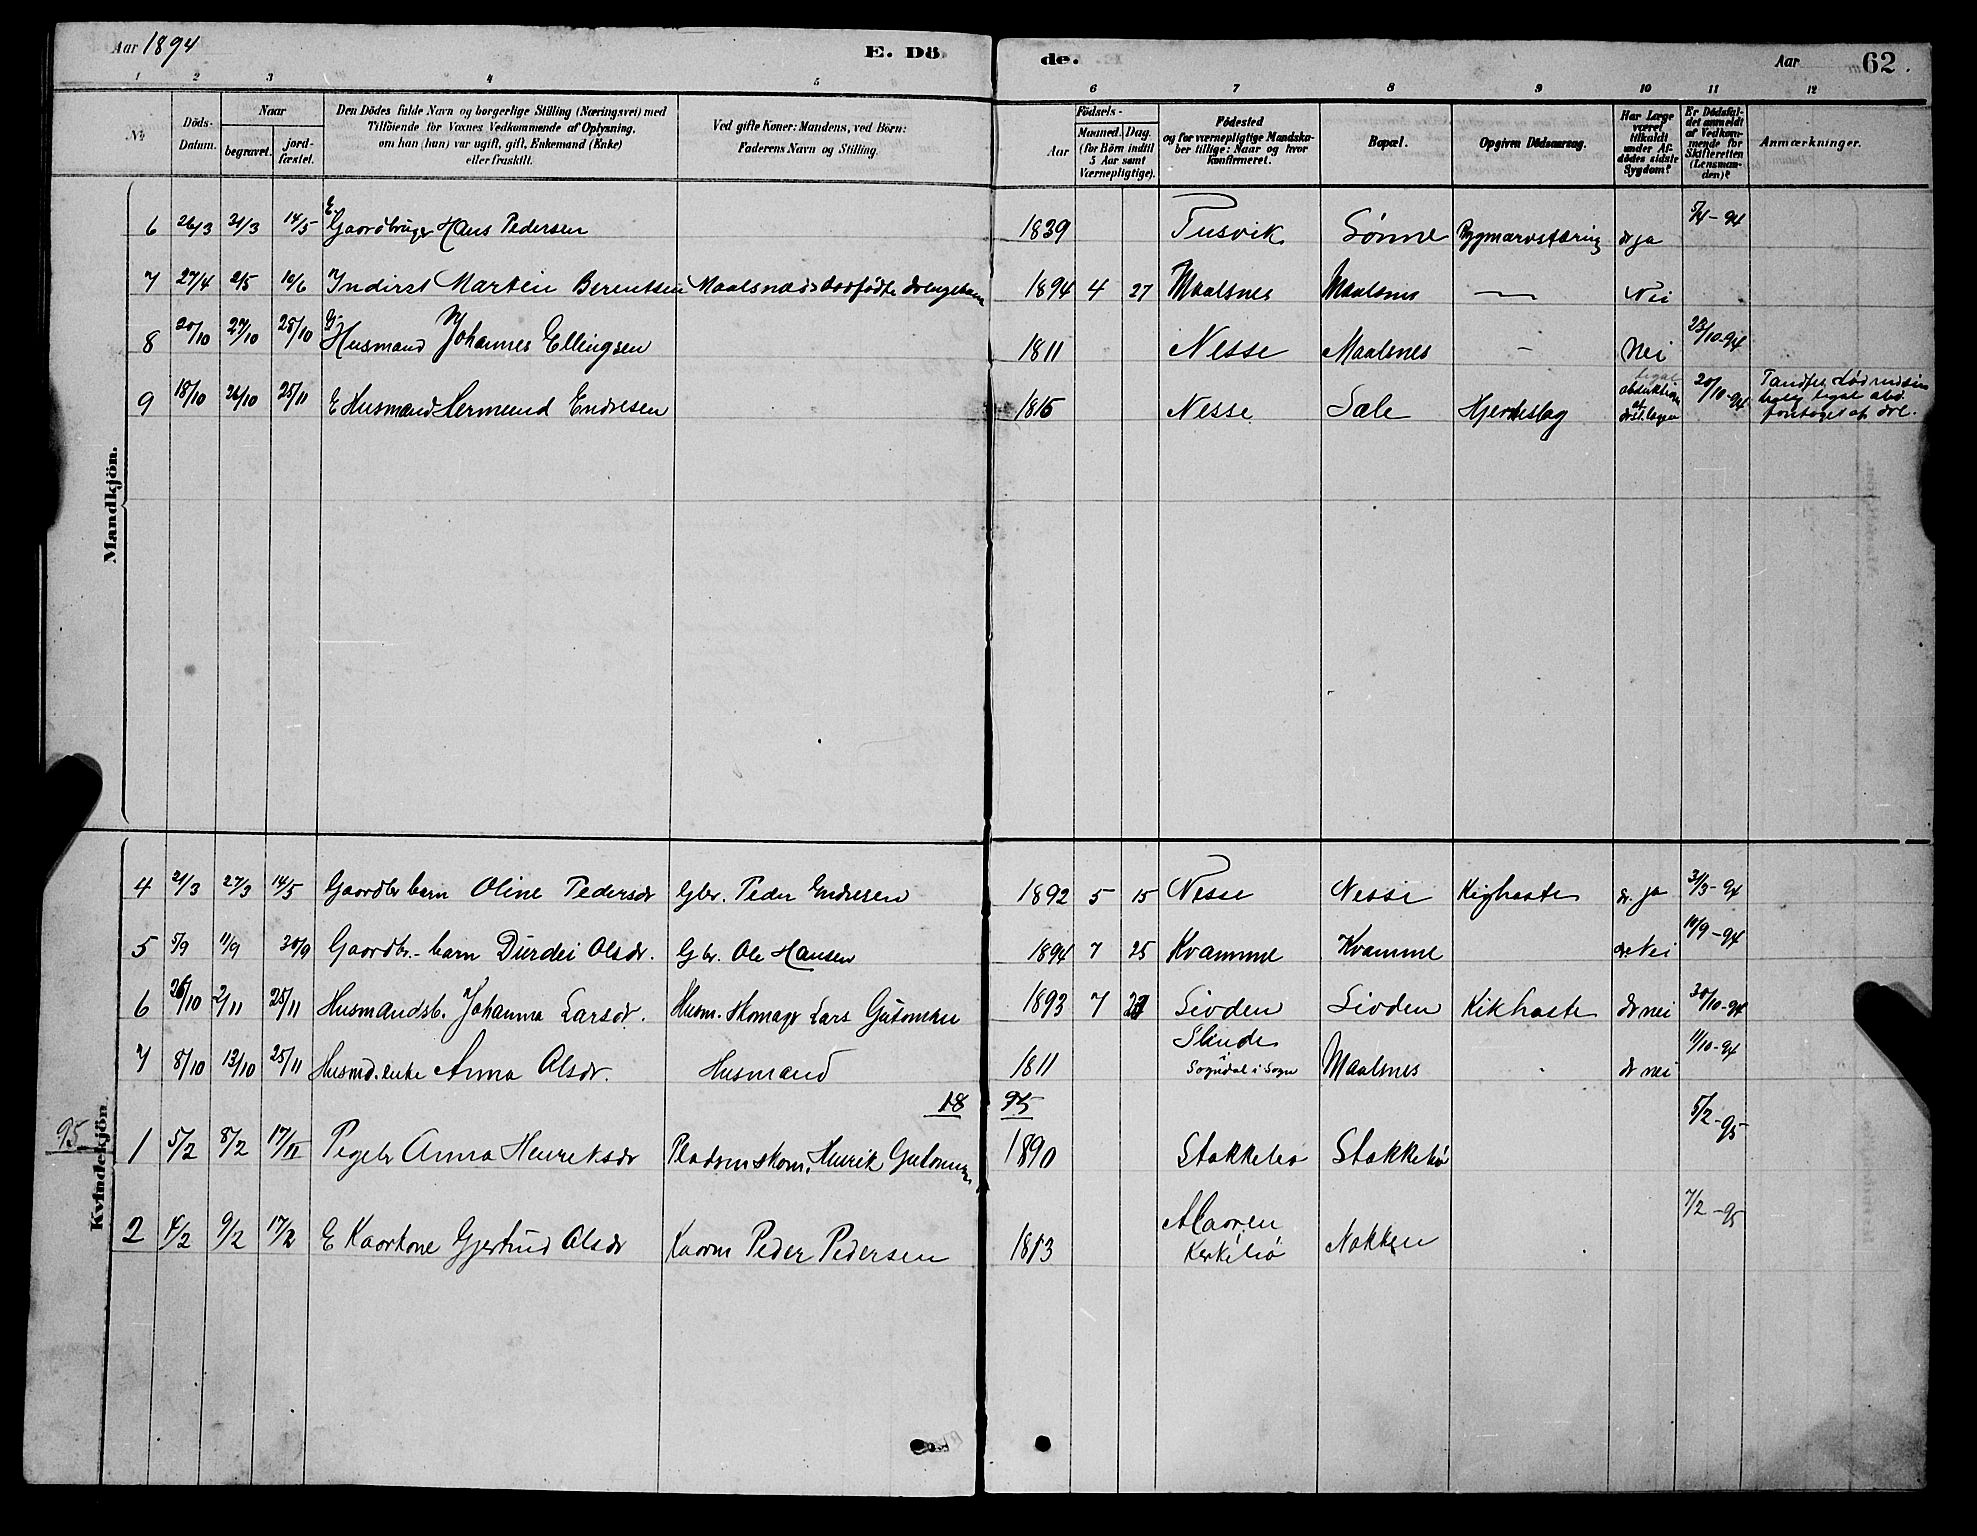 Aar 1894
E. Dö
de.
Aar
62.
1 2 3 4 5 6 7 8 9 10 11 12
No
Döds-
Datum.
Naar
begravet.
jord-
fæstet.
Den Dödes fulde Navn og borgerlige Stilling (Næringsvei) med
Tilföiende for Voxnes Vedkommende af Oplysning,
om han (hun) var ugift, gift, Enkemand (Enke)
eller fraskilt.
Ved gifte Koner: Mandens, ved Börn:
Faderens Navn og Stilling.
Födsels-
Aar
Maaned.
Dag.
(for Börn indtil
5 Aar samt
Værnepligtige).
Födested
og for værnepligtige Mandska-
ber tillige: Naar og hvor
konfirmeret.
Bopæl.
Opgiven Dödsaarsag.
Har Læge
været
tilkaldt
under Af-
dödes sidste
Sygdom?
Er Dödsfal-
det anmeldt
af Vedkom-
mende for
Skifteretten
(Lensman-
den)?
Anmærkninger.
Mandkjön.
6 26/3 31/3 14/5 E. Gaardbruger Hans Pedersen 1839 Tusvik Sønne dr ja 5/4-94
7 27/4 2/5 10/6 Martin Berentsen 1894 4 27 Maalsnes Maalsnes — Nei
8 20/10 27/10 28/10 G. Husmand Johannes Ellingsen 1811 Nesse Maalsnes - Nei 23/10-94
9 18/10 26/10 25/11 E Husmand Hermund Endresen 1815 Nesse Sæle Hjerteslag legal obduktion af 20/10-94
Kvindekjön
4 21/3 27/3 14/5 Gaardbr barn Oline Pedersdr Gbr. Peder Endresen 1892 5 15 Nesse Nesse Kighoste dr. ja 31/3-94
5 5/9 11/9 30/9 Gaardbr.- barn Durdei Olsdr. Gbr. Ole Hansen 1894 7 25 Kvamme Kvamme dr Nei 10/9-94
6 26/10 2/11 25/11 Husmandsb. Johanna Larsdr. Husm. Skomager Lars Guttormsen 1893 7 27 Sivden Sivden Kikhoste dr nei 30/10-94
7 8/10 13/10 25/11 Husmd. enke Anna Olsdr. Husmand 1811 Slinde i Sogndal i Sogn Maalsnes dr nei 11/10-94
18 95
95
1 5/2 8/2 17/2 Pigebr Anna Henriksdr Henrik Guttormsen 1890 Stokkebø Stokkebø 5/2-95
2 4/2 9/2 17/2 E Kaarkone Gjertrud Olsdr Kaarm Peder Pedersen 1813 Maaren Kirkebø Nokken 7/2-95